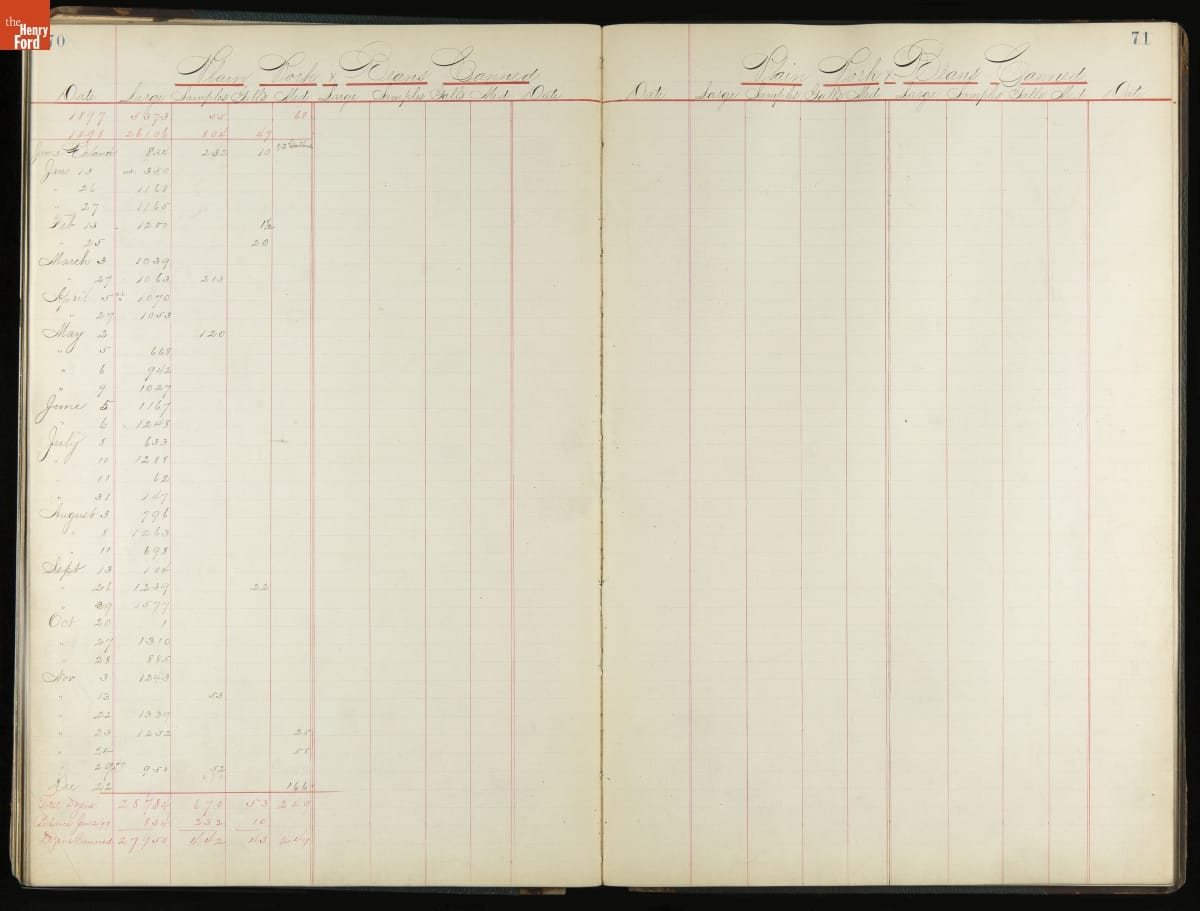 the Henry Ford
70
Plain Pork & Beans Canned
Date Large Samples Galls Med Large Samples Galls Med Date
1897 5373 55 60
1898 26106 804 47
Balance 834 232 10 1/2 Gallons
Jan 13 350
" 26 1168
" 27 1165
Feb 13 1200 1 1/2
" 25 20
March 3 1039
" 27 1063 213
April 5 1070
" 27 1053
May 2 120
" 5 668
" 6 942
" 9 1027
June 5 1167
" 6 1248
July 8 633
" 10 1288
" 11 62
" 31 147
August 3 796
" 8 1263
" 11 698
Sept 13 104
" 26 1239 22
" 29 1577
Oct 20 1
" 27 1310
" 28 885
Nov 3 1243
" 13 53
" 22 1339
" 23 1252 25
" 24 58
" 29 953 52
Dec 22 166
Total Dozens 28784 670 53 249
Balance Jan 2/99 834 232 10
Dozens Canned 27950 442 43 249
71
Plain Pork & Beans Canned
Date Large Samples Galls Med Large Samples Galls Med Date